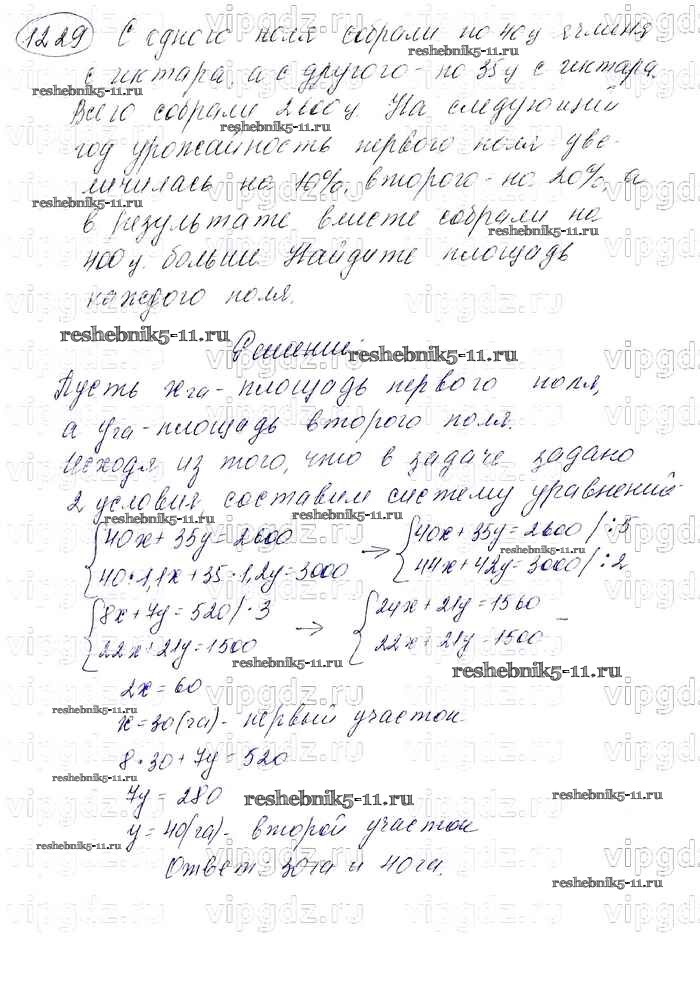 1229 С одного поля собрали по 40ц ячменя
с гектара, а с другого - по 35ц с гектара.
Всего собрали 2600ц. На следующий
год урожайность первого поля уве-
личилась на 10%, второго - на 20%, а
в результате вместе собрали на
400ц. больше. Найдите площадь
каждого поля.
Решение:
Пусть x га - площадь первого поля,
а y га - площадь второго поля.
Исходя из того, что в задаче задано
2 условия составим систему уравнений
{40x + 35y = 2600 → {40x + 35y = 2600 / :5
{40·1,1x + 35·1,2y = 3000 {44x + 42y = 3000 / :2
{8x + 7y = 520 / ·3 → {24x + 21y = 1560 -
{22x + 21y = 1500 {22x + 21y = 1500
2x = 60
x = 30(га) - первый участок
8·30 + 7y = 520
7y = 280
y = 40(га) - второй участок
Ответ: 30га и 40га.
reshebnik5-11.ru
vipgdz.ru